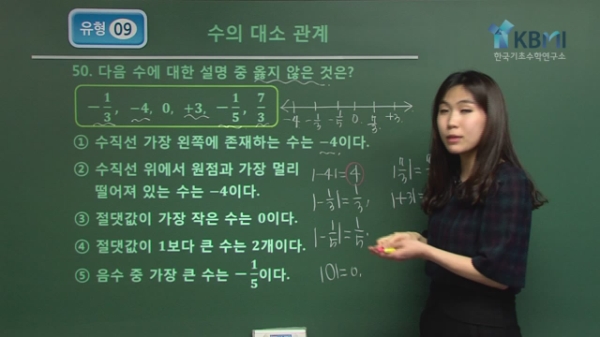 유형 09
수의 대소 관계
KBMI
한국기초수학연구소
50. 다음 수에 대한 설명 중 옳지 않은 것은?
-1/3, -4, 0, +3, -1/5, 7/3
-4 -1/3 -1/5 0 7/3 +3
① 수직선 가장 왼쪽에 존재하는 수는 -4이다.
② 수직선 위에서 원점과 가장 멀리
떨어져 있는 수는 -4이다.
③ 절댓값이 가장 작은 수는 0이다.
④ 절댓값이 1보다 큰 수는 2개이다.
⑤ 음수 중 가장 큰 수는 -1/5이다.
|-4|=4
|-1/3|=1/3,
|-1/5|=1/5.
|0|=0,
|7/3|=
|+3|=